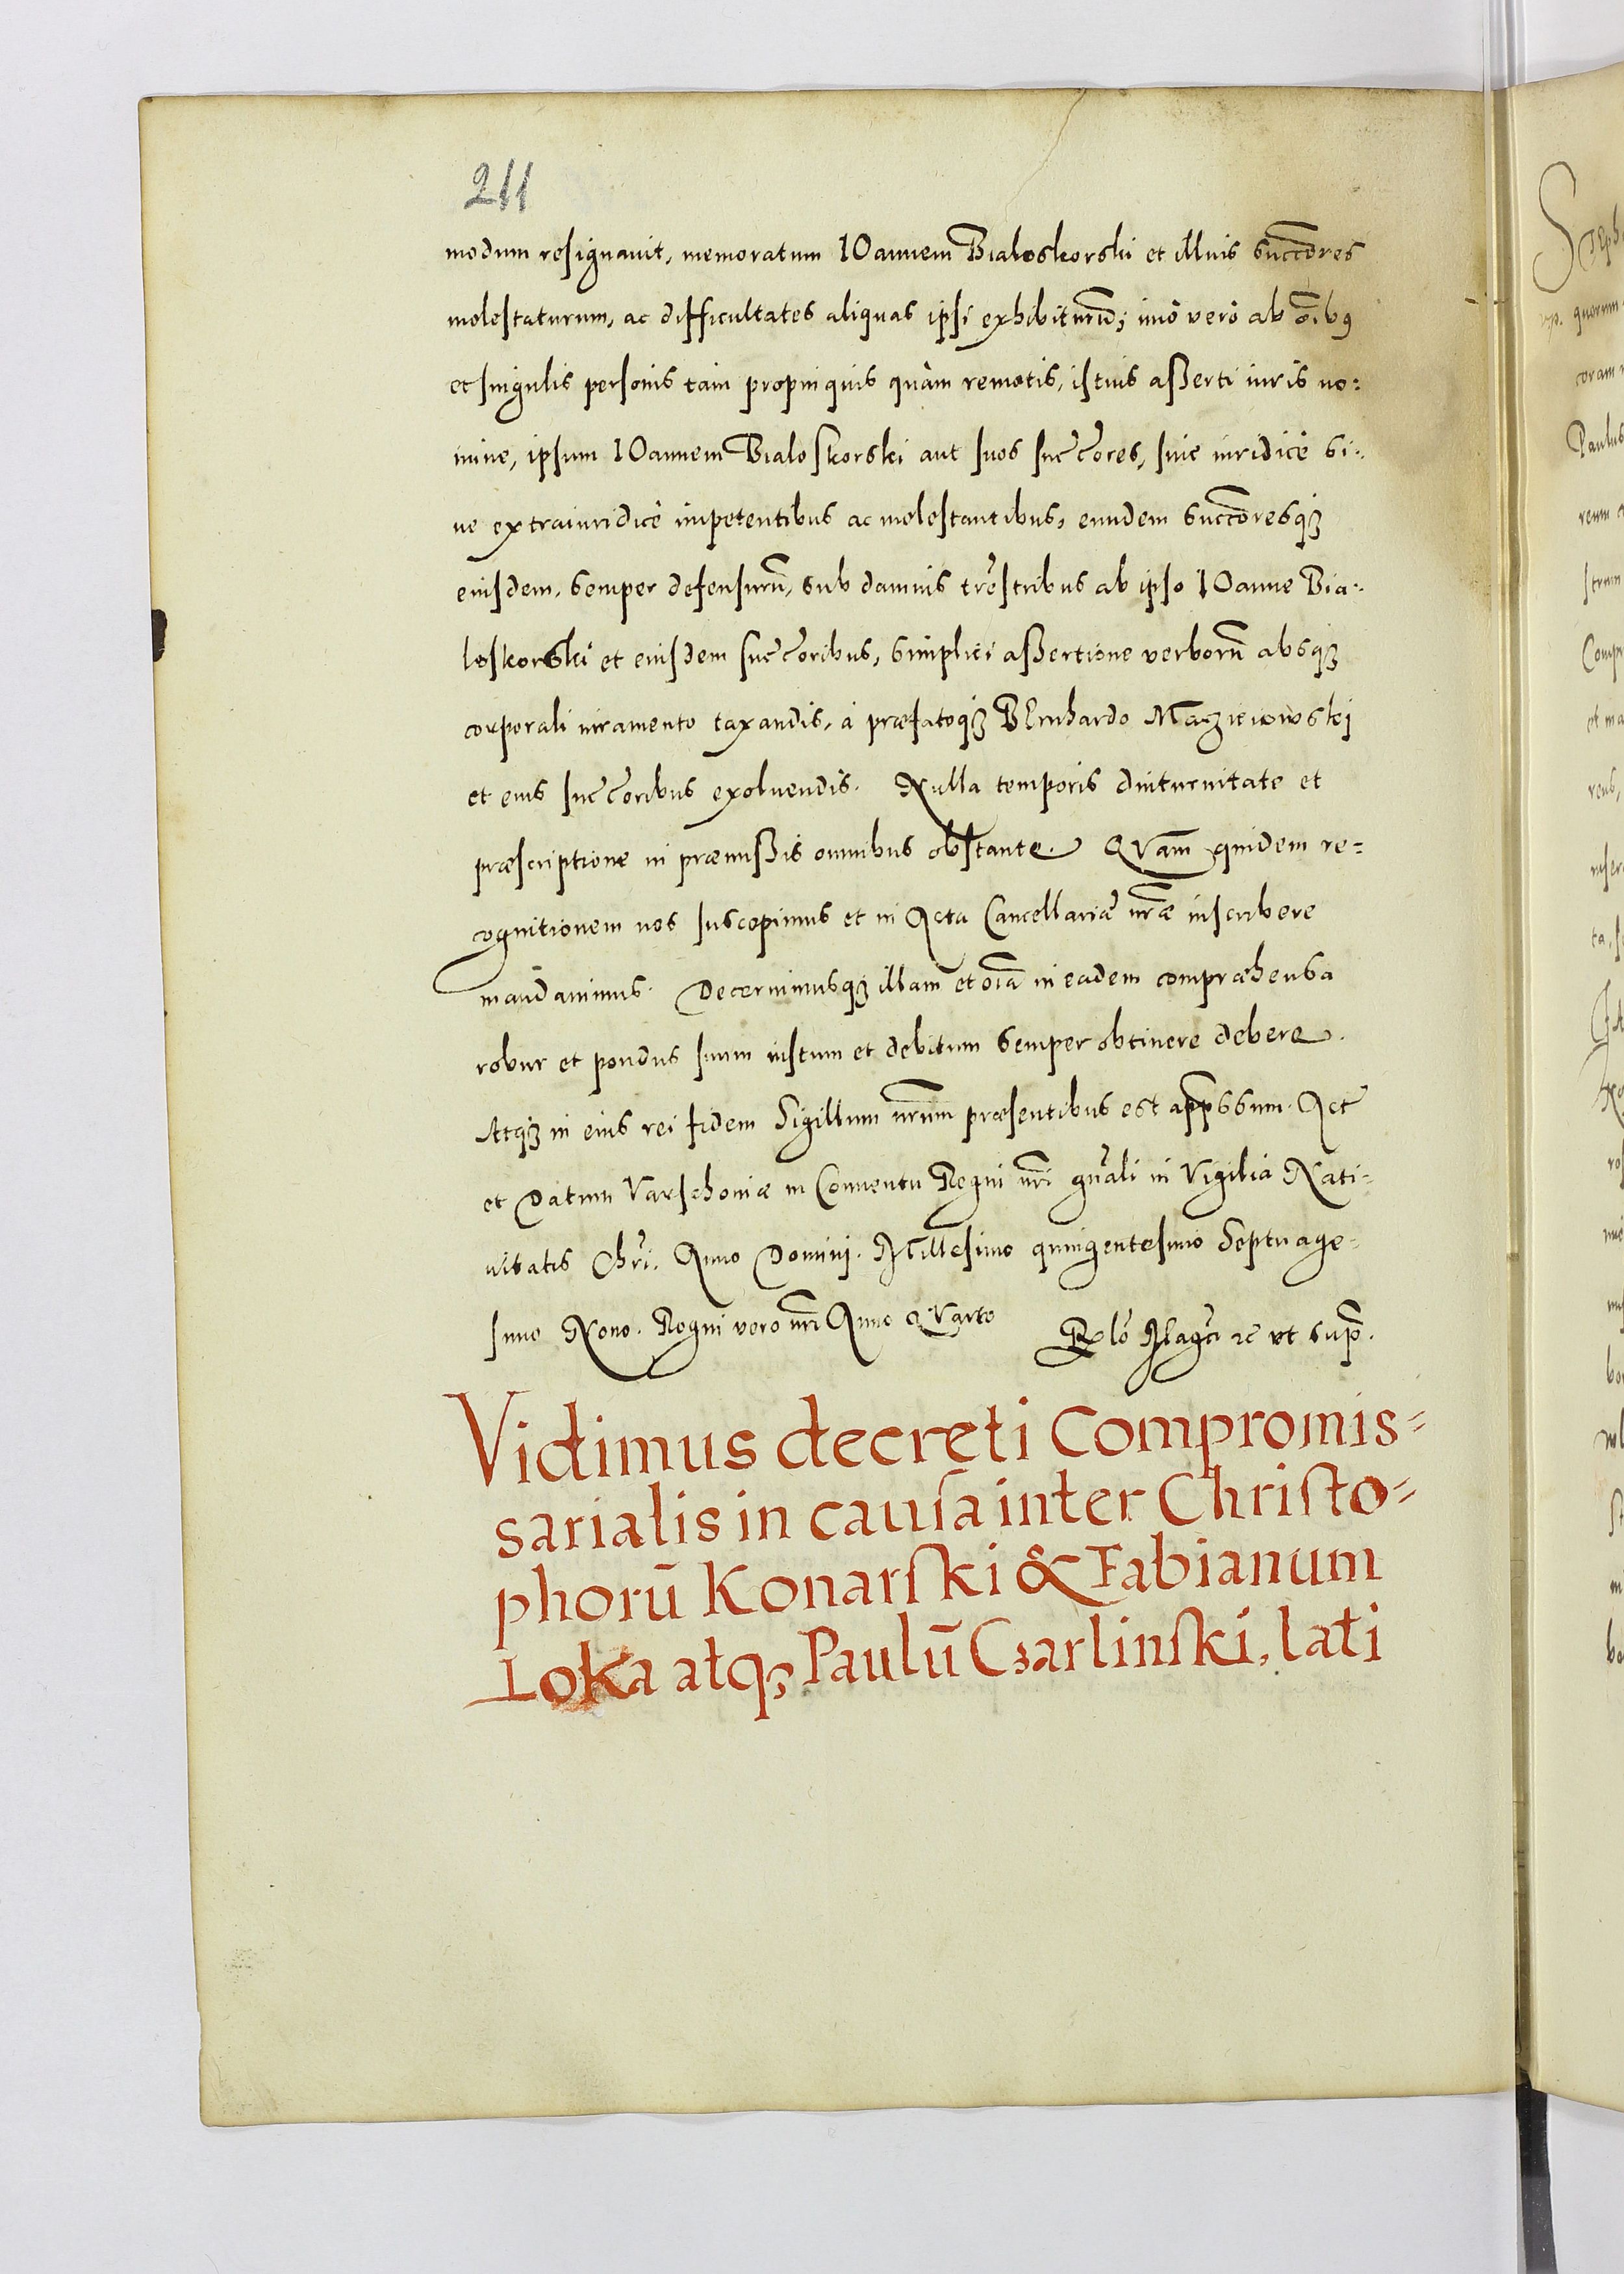 211
modum resignauit, memoratum IOannem Bialoskorski et illius succōres
molestaturum, ac difficultates aliquas ipsi exhibiturū; imò verò ab oībꝰ
et singulis personis tam propinquis quàm remotis, istius asserti iuris no:
mine, ipsum IOannem Bialoskorski aut suos succ̄ores, siue iuridicè si:
ue extraiuridicè impetentibus ac molestantibus, eundem succōresqꝫ
eiusdem, semper defensurū, sub damnis tr̄estribus ab ipso IOanne Bia:
loskorski et eiusdem succ̄oribus, simplici assertione verborū absqꝫ
corporali iuramento taxandis, à præfatoqꝫ BErnhardo Maczieiowskj
et eius succ̄oribus exoluendis. Nulla temporis diuturnitate et
præscriptione in præmissis omnibus obstante. QVam quidem re=
cognitionem nos suscepimus et in Acta Cancellariæ nr̄æ inscribere
mandauimus. Decernimusqꝫ illam et oīa in eadem compræhensa
robur et pondus suum iustum et debitum semper obtinere debere.
Atqꝫ in eius rei fidem Sigillum nr̄um præsentibus est app̄ssum. Act̄
et Datum Varschouiæ in Conuentu Regni nr̄i gn̄ali in Vigilia Nati=
uitatis Chrī. Anno Dominj. Millesimo quingentesimo Septuage=
simo Nono. Regni vero nr̄i Anno QVarto
Rel̄o Mag̃ci ꝛc̄ vt sup̄.
Vidimus decreti Compromis=
sarialis in causa inter Christo=
phorū Konarski & Fabianum
Łoka atqꝫ Paulū Czarlinski, lati